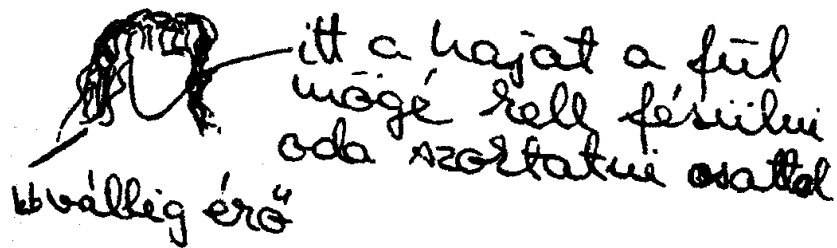 itt a hajat a fül
mögé kell fésülni
oda szorítatni csattal
kb vállig érő